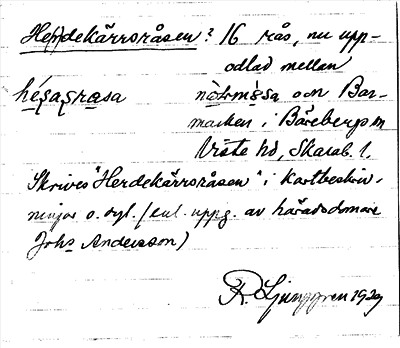 He(r)dekärrsråsen? 16 rås, nu upp-
odlad mellan
och Bar-
marken i Bäreberg sn
Viste hd, Skarab. l.
Skrives "Herdekärrsråsen" i kartbeskriv-
ningar o. dyl. (enl. uppg. av häradsdomare
Johs Andersson)
R. Ljunggren 1929